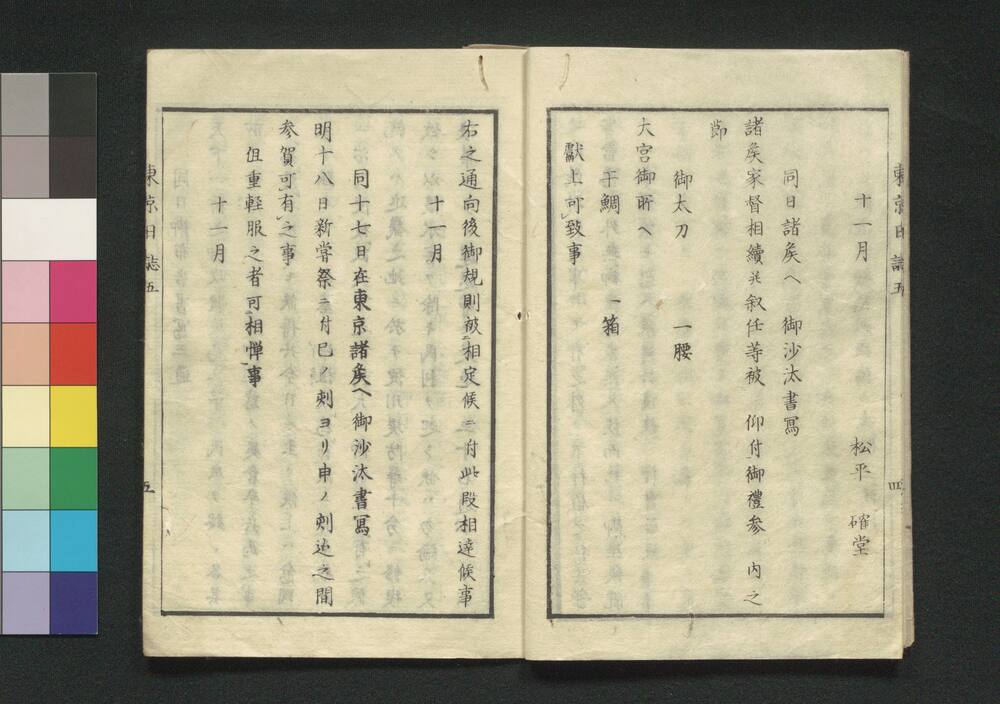 東京日誌五
四
十一月
松平 確堂
同日諸矦へ 御沙汰書寫
諸矦家督相續并叙任等被 仰付御禮参 内之
節
御太刀 一腰
大宮御所へ
干鯛 一箱
獻上可致事
右之通向後御規則被相定候ニ付此段相達候事
十一月
同十七日在東京諸矦へ御沙汰書寫
明十八日新嘗祭ニ付巳ノ刻ヨリ申ノ刻迄之間
参賀可有之事
但重軽服之者可相憚事
十一月
東京日誌五
五